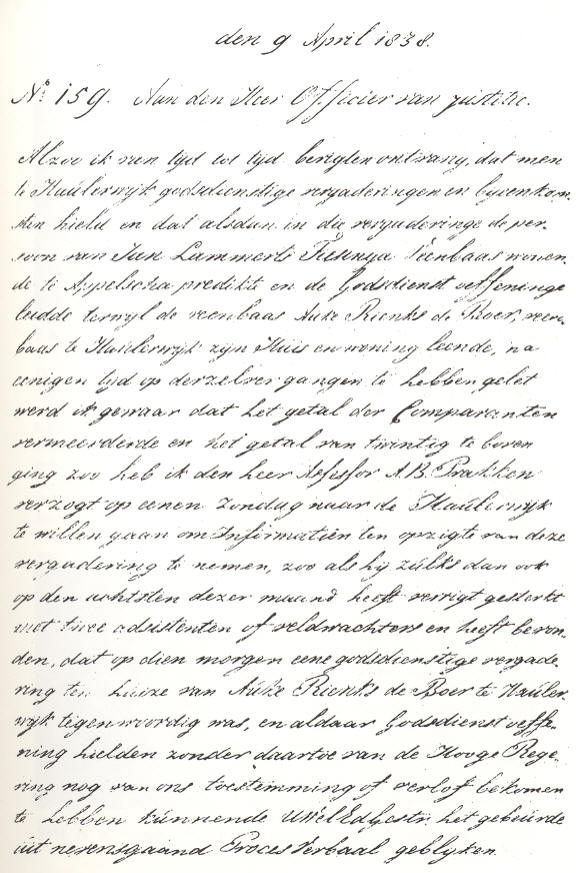 den 9 April 1838.
No. 159. Aan den Heer Officier van justitie.
Alzoo ik van tijd tot tijd berigten ontvang, dat men
te Haulerwijk godsdienstige vergaderingen en bijeenkom-
sten hield en dat alsdan in die vergaderinge de per-
soon van Jan Lammerts Veenbaas wonen-
de te Appelscha predikte en de Godsdienst oeffeninge
leidde terwyl de veenbaas Auke Rienks de Boer, veen-
baas te Haulerwijk zijn Huis en woning leende, na
eenigen tyd op derzelver gangen te hebben gelet
werd ik gewaar dat het getal der Comparanten
vermeerderde en het getal van twintig te boven
ging zoo heb ik den heer Assessor A.B. Prakken
verzogt op eenen Zondag naar de Haulerwijk
te willen gaan om Informatiën ten opzigte van deze
vergadering te nemen, zoo als hij zulks dan ook
op den achtsten dezer maand heeft verrigt gesterkt
met twee adsistenten of veldwachters en heeft bevon-
den, dat op dien morgen eene godsdienstige vergade-
ring ten huize van Auke Rienks de Boer te Hauler-
wijk tegenwoordig was, en aldaar Godsdienst oeffe-
ning hielden zonder daartoe van de Hooge Rege-
ring nog van ons toestemming of verlof bekomen
te hebben kunnende UWelEdGestr. het gebeurde
uit nevensgaand Proces Verbaal geblijken.